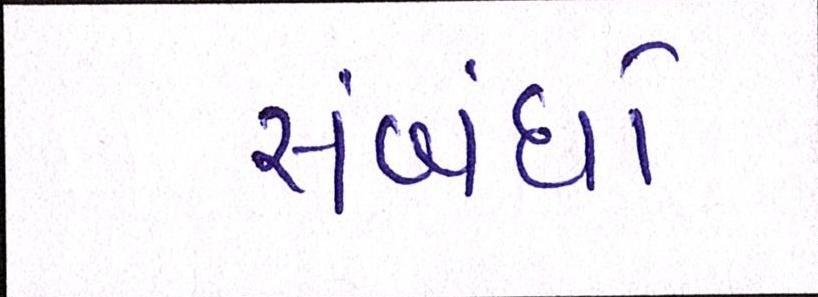 સંબંધો